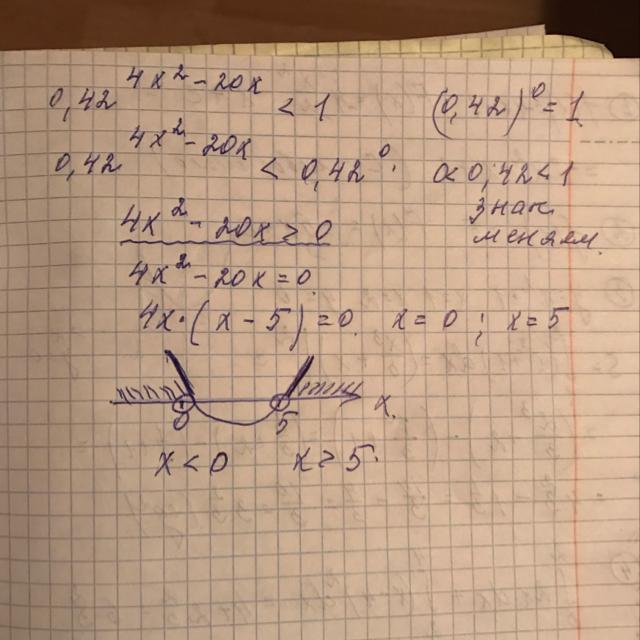 0,42^(4x² - 20x) < 1 (0,42)⁰ = 1
0,42^(4x² - 20x) < 0,42⁰. 0,42 < 1
знак
4x² - 20x > 0 меняем.
4x² - 20x = 0
4x · (x - 5) = 0. x = 0 ; x = 5
0 5 x.
x < 0 x > 5.